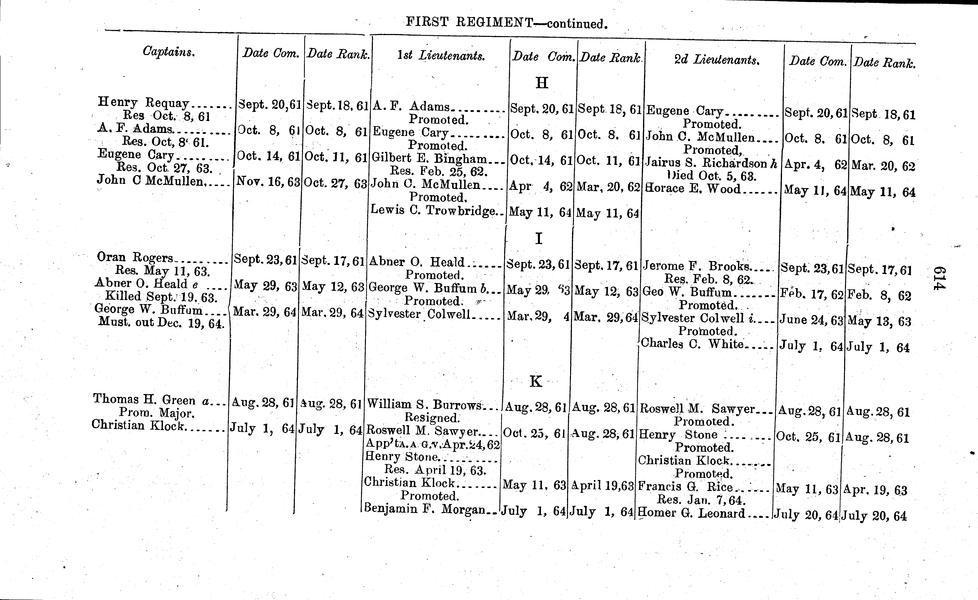 FIRST REGIMENT—continued.
Captains. Date Com. Date Rank. 1st Lieutenants. Date Com. Date Rank 2d Lieutenants. Date Com. Date Rank.
H
Henry Requay....... Sept. 20, 61 Sept. 18, 61 A. F. Adams......... Sept. 20, 61 Sept. 18, 61 Eugene Cary......... Sept. 20, 61 Sept. 18, 61
Res Oct. 8, 61 Promoted. Promoted.
A. F. Adams.......... Oct. 8, 61 Oct. 8, 61 Eugene Cary......... Oct. 8, 61 Oct. 8. 61 John C. McMullen.... Oct. 8. 61 Oct. 8, 61
Res. Oct, 8 61. Promoted. Promoted,
Eugene Cary......... Oct. 14, 61 Oct. 11, 61 Gilbert E. Bingham... Oct. 14, 61 Oct. 11, 61 Jairus S. Richardson h Apr. 4, 62 Mar. 20, 62
Res. Oct. 27, 63. Res. Feb. 25, 62. Died Oct. 5, 63.
John C McMullen..... Nov. 16, 63 Oct. 27, 63 John C. McMullen.... Apr 4, 62 Mar. 20, 62 Horace E. Wood...... May 11, 64 May 11, 64
Promoted.
Lewis C. Trowbridge.. May 11, 64 May 11, 64
I
Oran Rogers......... Sept. 23, 61 Sept. 17, 61 Abner O. Heald...... Sept. 23, 61 Sept. 17, 61 Jerome F. Brooks..... Sept. 23, 61 Sept. 17, 61
Res. May 11, 63. Promoted. Res. Feb. 8, 62.
Abner O. Heald e .... May 29, 63 May 12, 63 George W. Buffum b... May 29, 63 May 12, 63 Geo W. Buffum....... Feb. 17, 62 Feb. 8, 62
Killed Sept. 19. 63. Promoted. Promoted.
George W. Buffum.... Mar. 29, 64 Mar. 29, 64 Sylvester Colwell..... Mar. 29, 4 Mar. 29, 64 Sylvester Colwell i.... June 24, 63 May 13, 63
Must. out Dec. 19, 64. Promoted.
Charles C. White..... July 1, 64 July 1, 64
K
Thomas H. Green a... Aug. 28, 61 Aug. 28, 61 William S. Burrows... Aug. 28, 61 Aug. 28, 61 Roswell M. Sawyer... Aug. 28, 61 Aug. 28, 61
Prom. Major. Resigned. Promoted.
Christian Klock....... July 1, 64 July 1, 64 Roswell M. Sawyer.... Oct. 25, 61 Aug. 28, 61 Henry Stone ........ Oct. 25, 61 Aug. 28, 61
App't A. A G. V. Apr. 24, 62 Promoted.
Henry Stone.......... Christian Klock.......
Res. April 19, 63. Promoted.
Christian Klock....... May 11. 63 April 19, 63 Francis G. Rice....... May 11, 63 Apr. 19, 63
Promoted. Res. Jan. 7, 64.
Benjamin F. Morgan.. July 1, 64 July 1, 64 Homer G. Leonard.... July 20, 64 July 20, 64
614